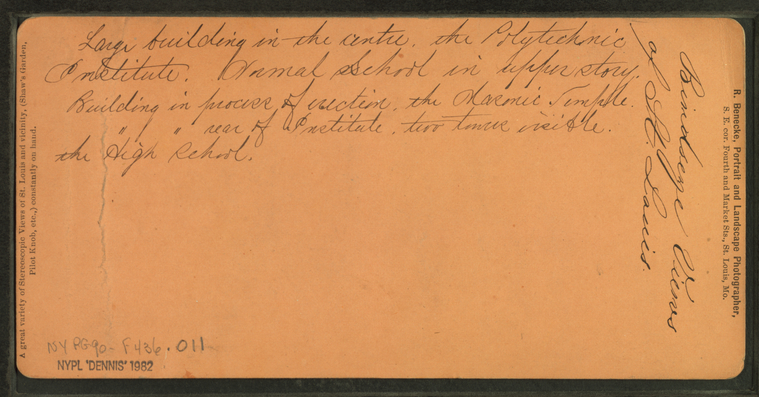 Large building in the centre, the Polytechnic
Institute. Normal school in upper story.
Building in process of erection, the Masonic Temple.
" " rear of Institute, two towers visible.
the High School.
Birdseye Views
of St. Louis.
R. Benecke, Portrait and Landscape Photographer,
S. E. cor. Fourth and Market Sts., St. Louis, Mo.
A great variety of Stereoscopic Views of St. Louis and vicinity, (Shaw's Garden,
Pilot Knob, etc.,) constantly on hand.
NY PG90-F436.011
NYPL 'DENNIS' 1982